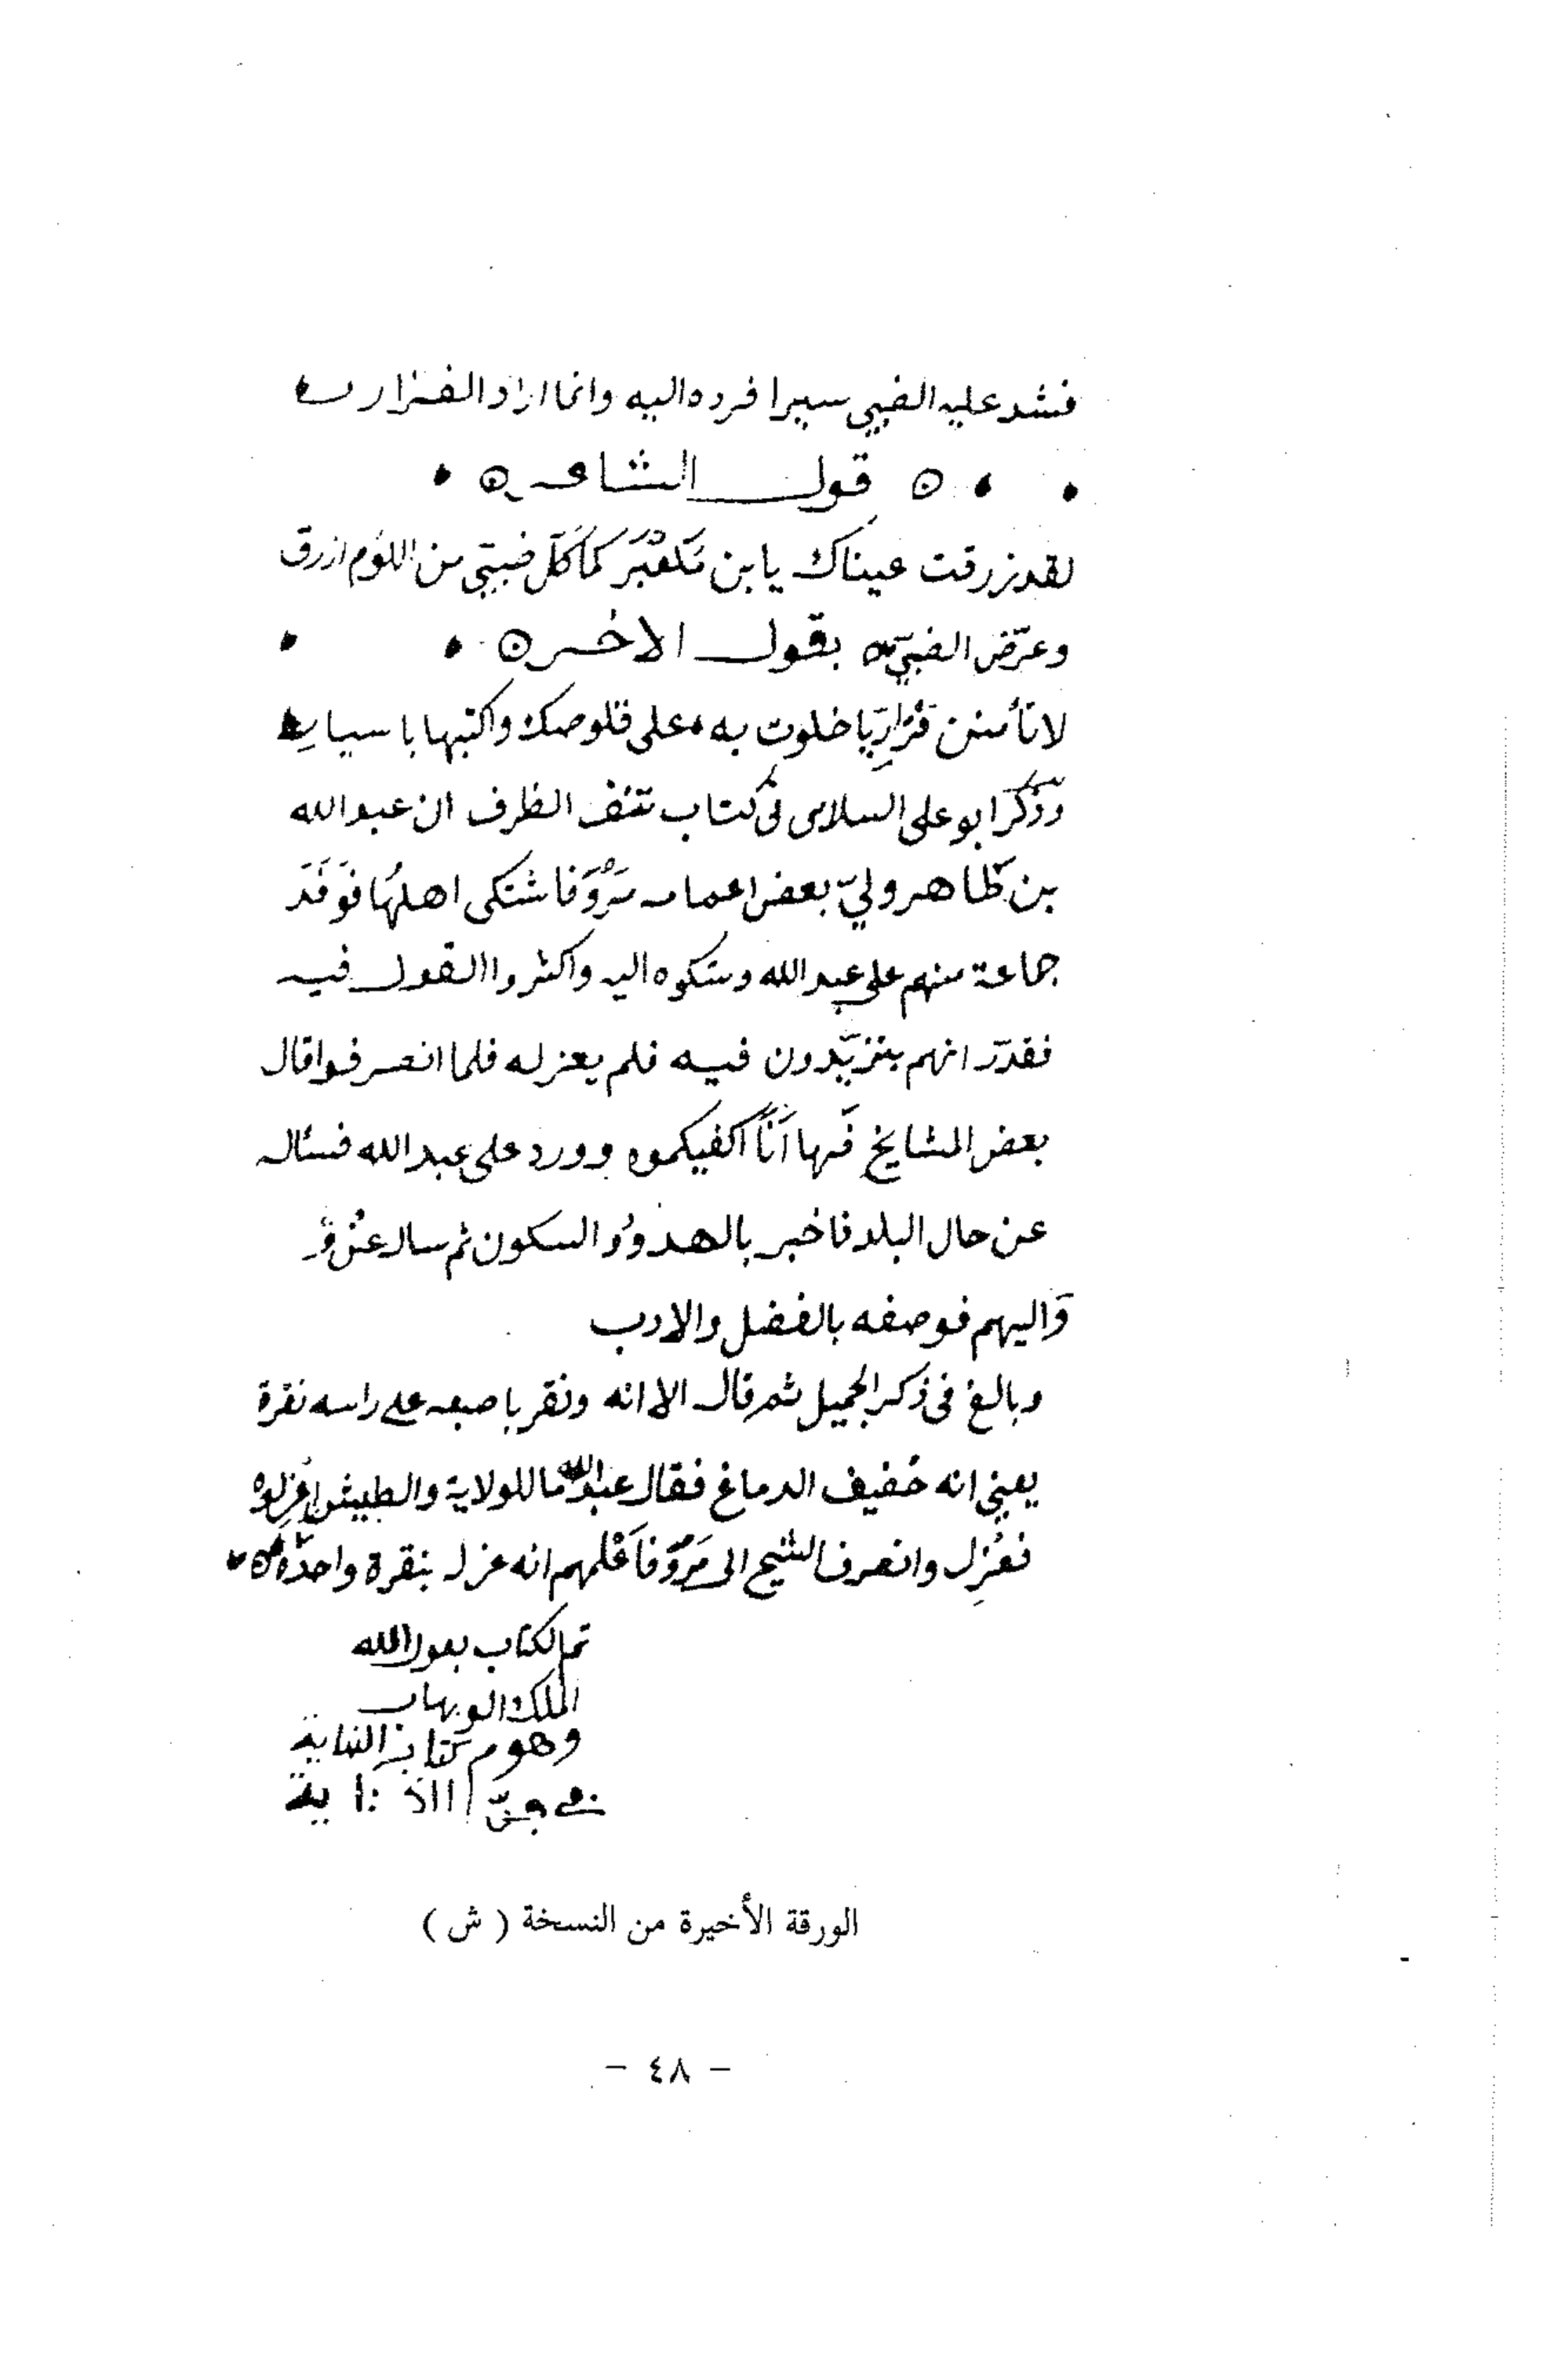 فشد عليه الضبي سيرا فرده اليه وانما اراد الفزاري
قول الشاعر
لقد زرقت عيناك يا بن مكعبر كما كل ضبي من اللؤم ازرق
وعرض الضبي بقول الاخر
لا تأمنن فزاريا خلوت به على قلوصك واكتبها باسيار
وذكر ابو علي السلامي في كتاب نتف الظرف ان عبد الله
بن طاهر ولي بعض اعمامه مرو فاشتكى اهلها فوفد
جماعة منهم على عبد الله وشكوه اليه واكثروا القول فيه
فقدر انهم يتزيدون فيه فلم يعزله فلما انصرفوا قال
بعض المشايخ فها انا اكفيكموه وورد على عبد الله فسئاله
عن حال البلد فاخبر بالهدو والسكون ثم سال عن
واليهم فوصفه بالفضل والادب
وبالغ في ذكر الجميل ثم قال الا انه ونقر باصبعه على راسه نقرة
يعني انه خفيف الدماغ فقال عبد الله ما للولاية والطيش اعزلوه
فعزل وانصرف الشيخ الى مرو فاعلمهم انه عزل بنقرة واحدة
تم الكتاب بعون الله
الملك الوهاب
وهو كتاب
الورقة الأخيرة من النسخة ( ش )
- ٤٨ -